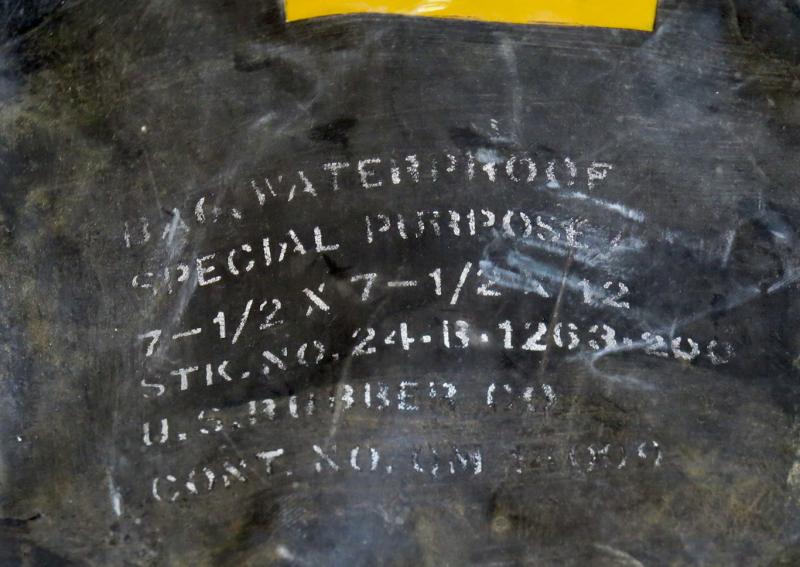 BAG, WATERPROOF
SPECIAL PURPOSE,
7-1/2 X 7-1/2 X 12
STK. NO. 24-B-1263-200
U.S. RUBBER CO
CONT. NO. QM